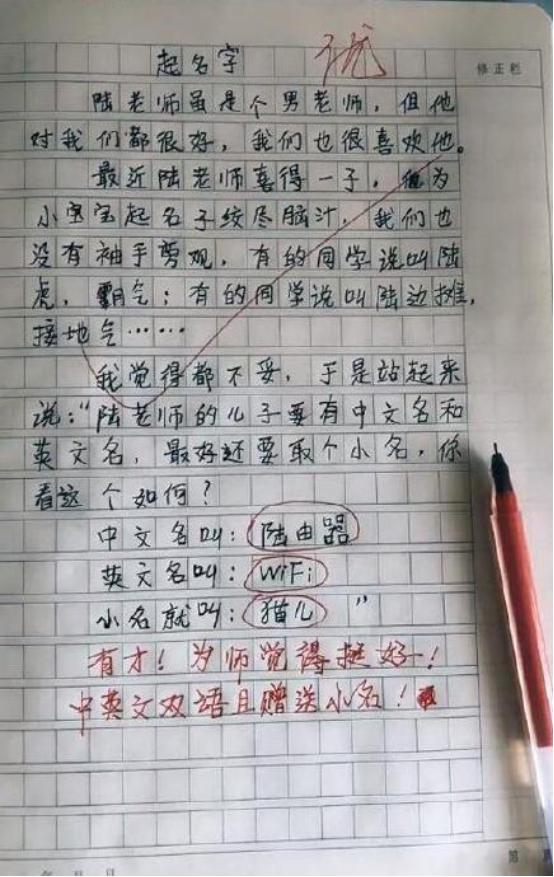 起名字
优
修正栏
陆老师虽是个男老师，但他
对我们都很好，我们也很喜欢他。
最近陆老师喜得一子，他为
小宝宝起名子绞尽脑汁，我们也
没有袖手旁观，有的同学说叫陆
虎，霸气；有的同学说叫陆边摊，
接地气……
我觉得都不妥，于是站起来
说：“陆老师的儿子要有中文名和
英文名，最好还要取个小名，你
看这个如何？
中文名叫：陆由器
英文名叫：WiFi
小名就叫：猫儿 ”
有才！为师觉得挺好！
中英文双语且赠送小名！
年 月 日
第